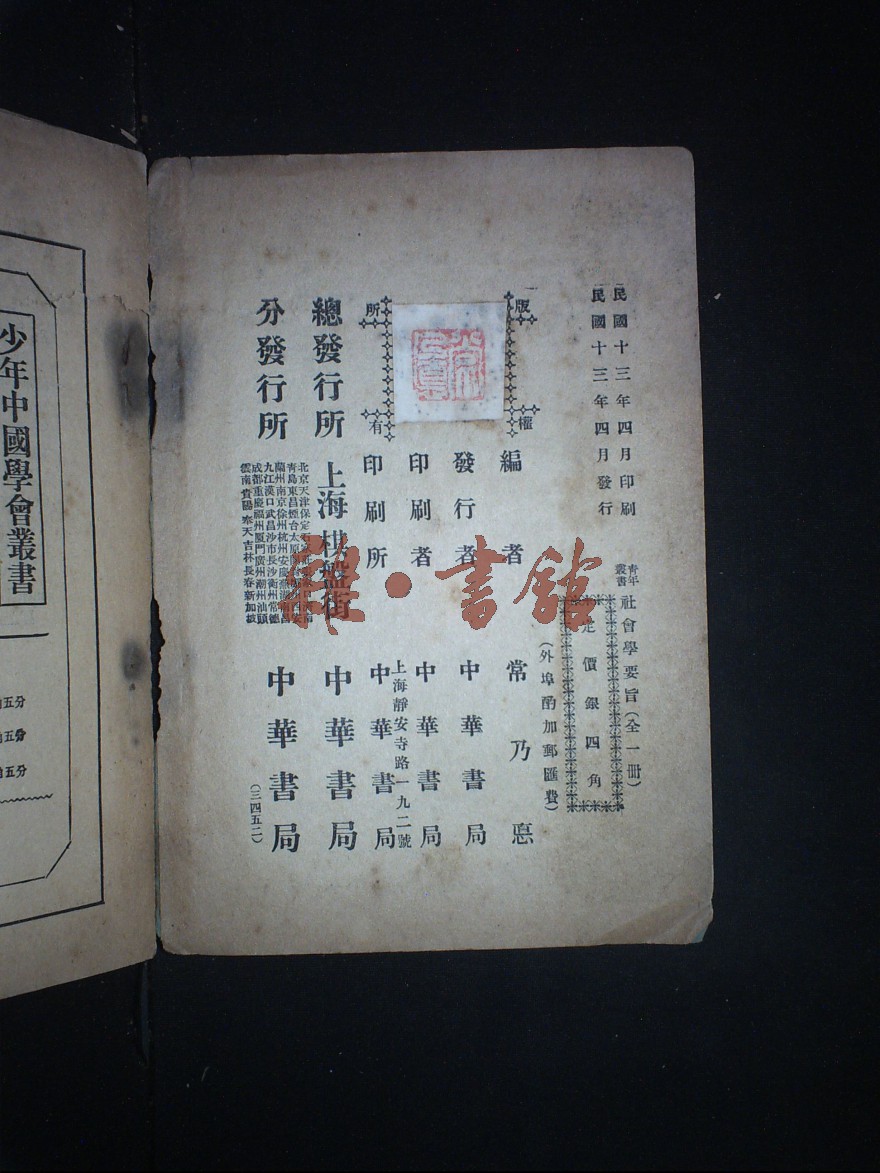 民國十三年四月印刷
民國十三年四月發行
青年叢書 社會學要旨(全一冊)
定價銀四角
(外埠酌加郵匯費)
版權所有
編者 常乃悳
發行者 中華書局
印刷者 中華書局
上海靜安寺路一九二號
印刷所 中華書局
總發行所 上海棋盤街 中華書局
分發行所 中華書局
北京天津保定
青島東昌煙台太原
蘭州南京徐州杭州安慶蕪湖南昌
九江漢口武昌沙市長沙衡州常德
成都重慶福州厦門廣州潮州汕頭
雲南貴陽奉天吉林長春新加坡
(三四五二)
雜·書館
少年中國學會叢書
五分
五分
五分